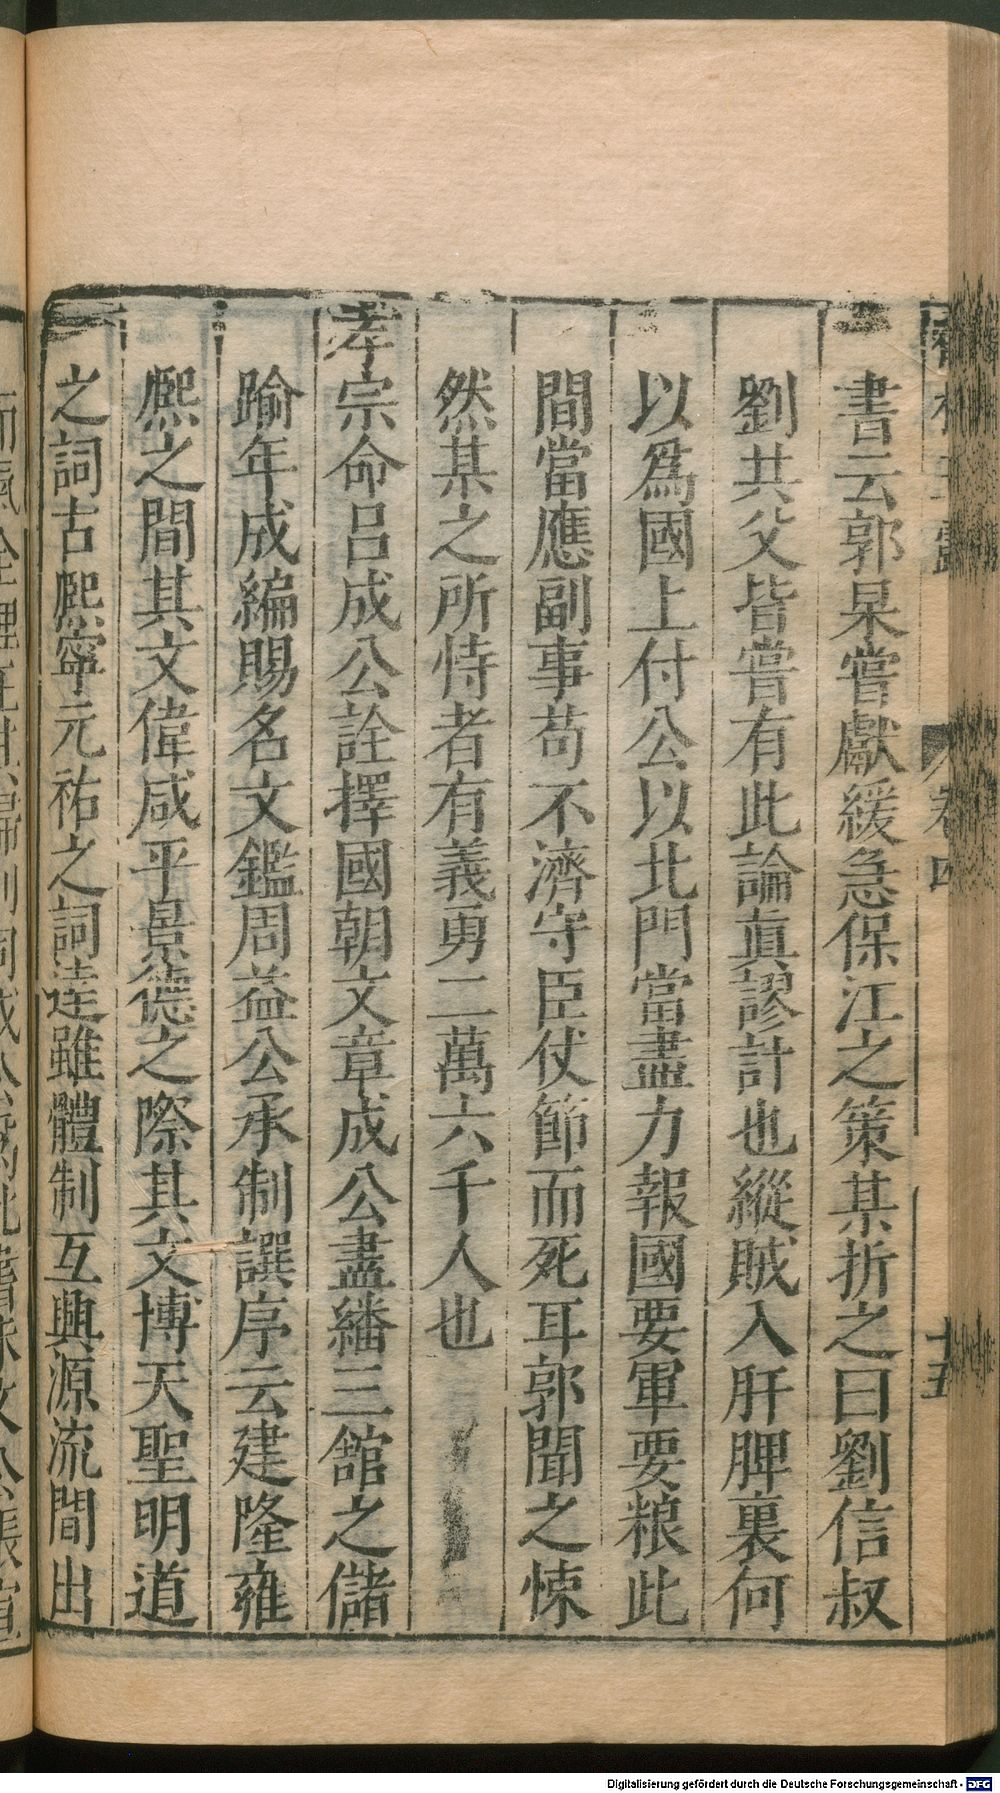 書云郭杲嘗獻緩急保江之策某折之曰劉信叔
劉共父皆嘗有此論眞謬計也縱賊入肝脾裏何
以爲國上付公以北門當盡力報國要軍要粮此
間當應副事苟不濟守臣仗節而死耳郭聞之悚
然某之所恃者有義勇二萬六千人也
孝宗命呂成公詮擇國朝文章成公盡繙三館之儲
踰年成編賜名文鑑周益公承制譔序云建隆雍
熈之間其文偉咸平景德之際其文博天聖明道
之詞古熈寧元祐之詞達雖體制互興源流間出
卷四
十五
Digitalisierung gefördert durch die Deutsche Forschungsgemeinschaft - DFG